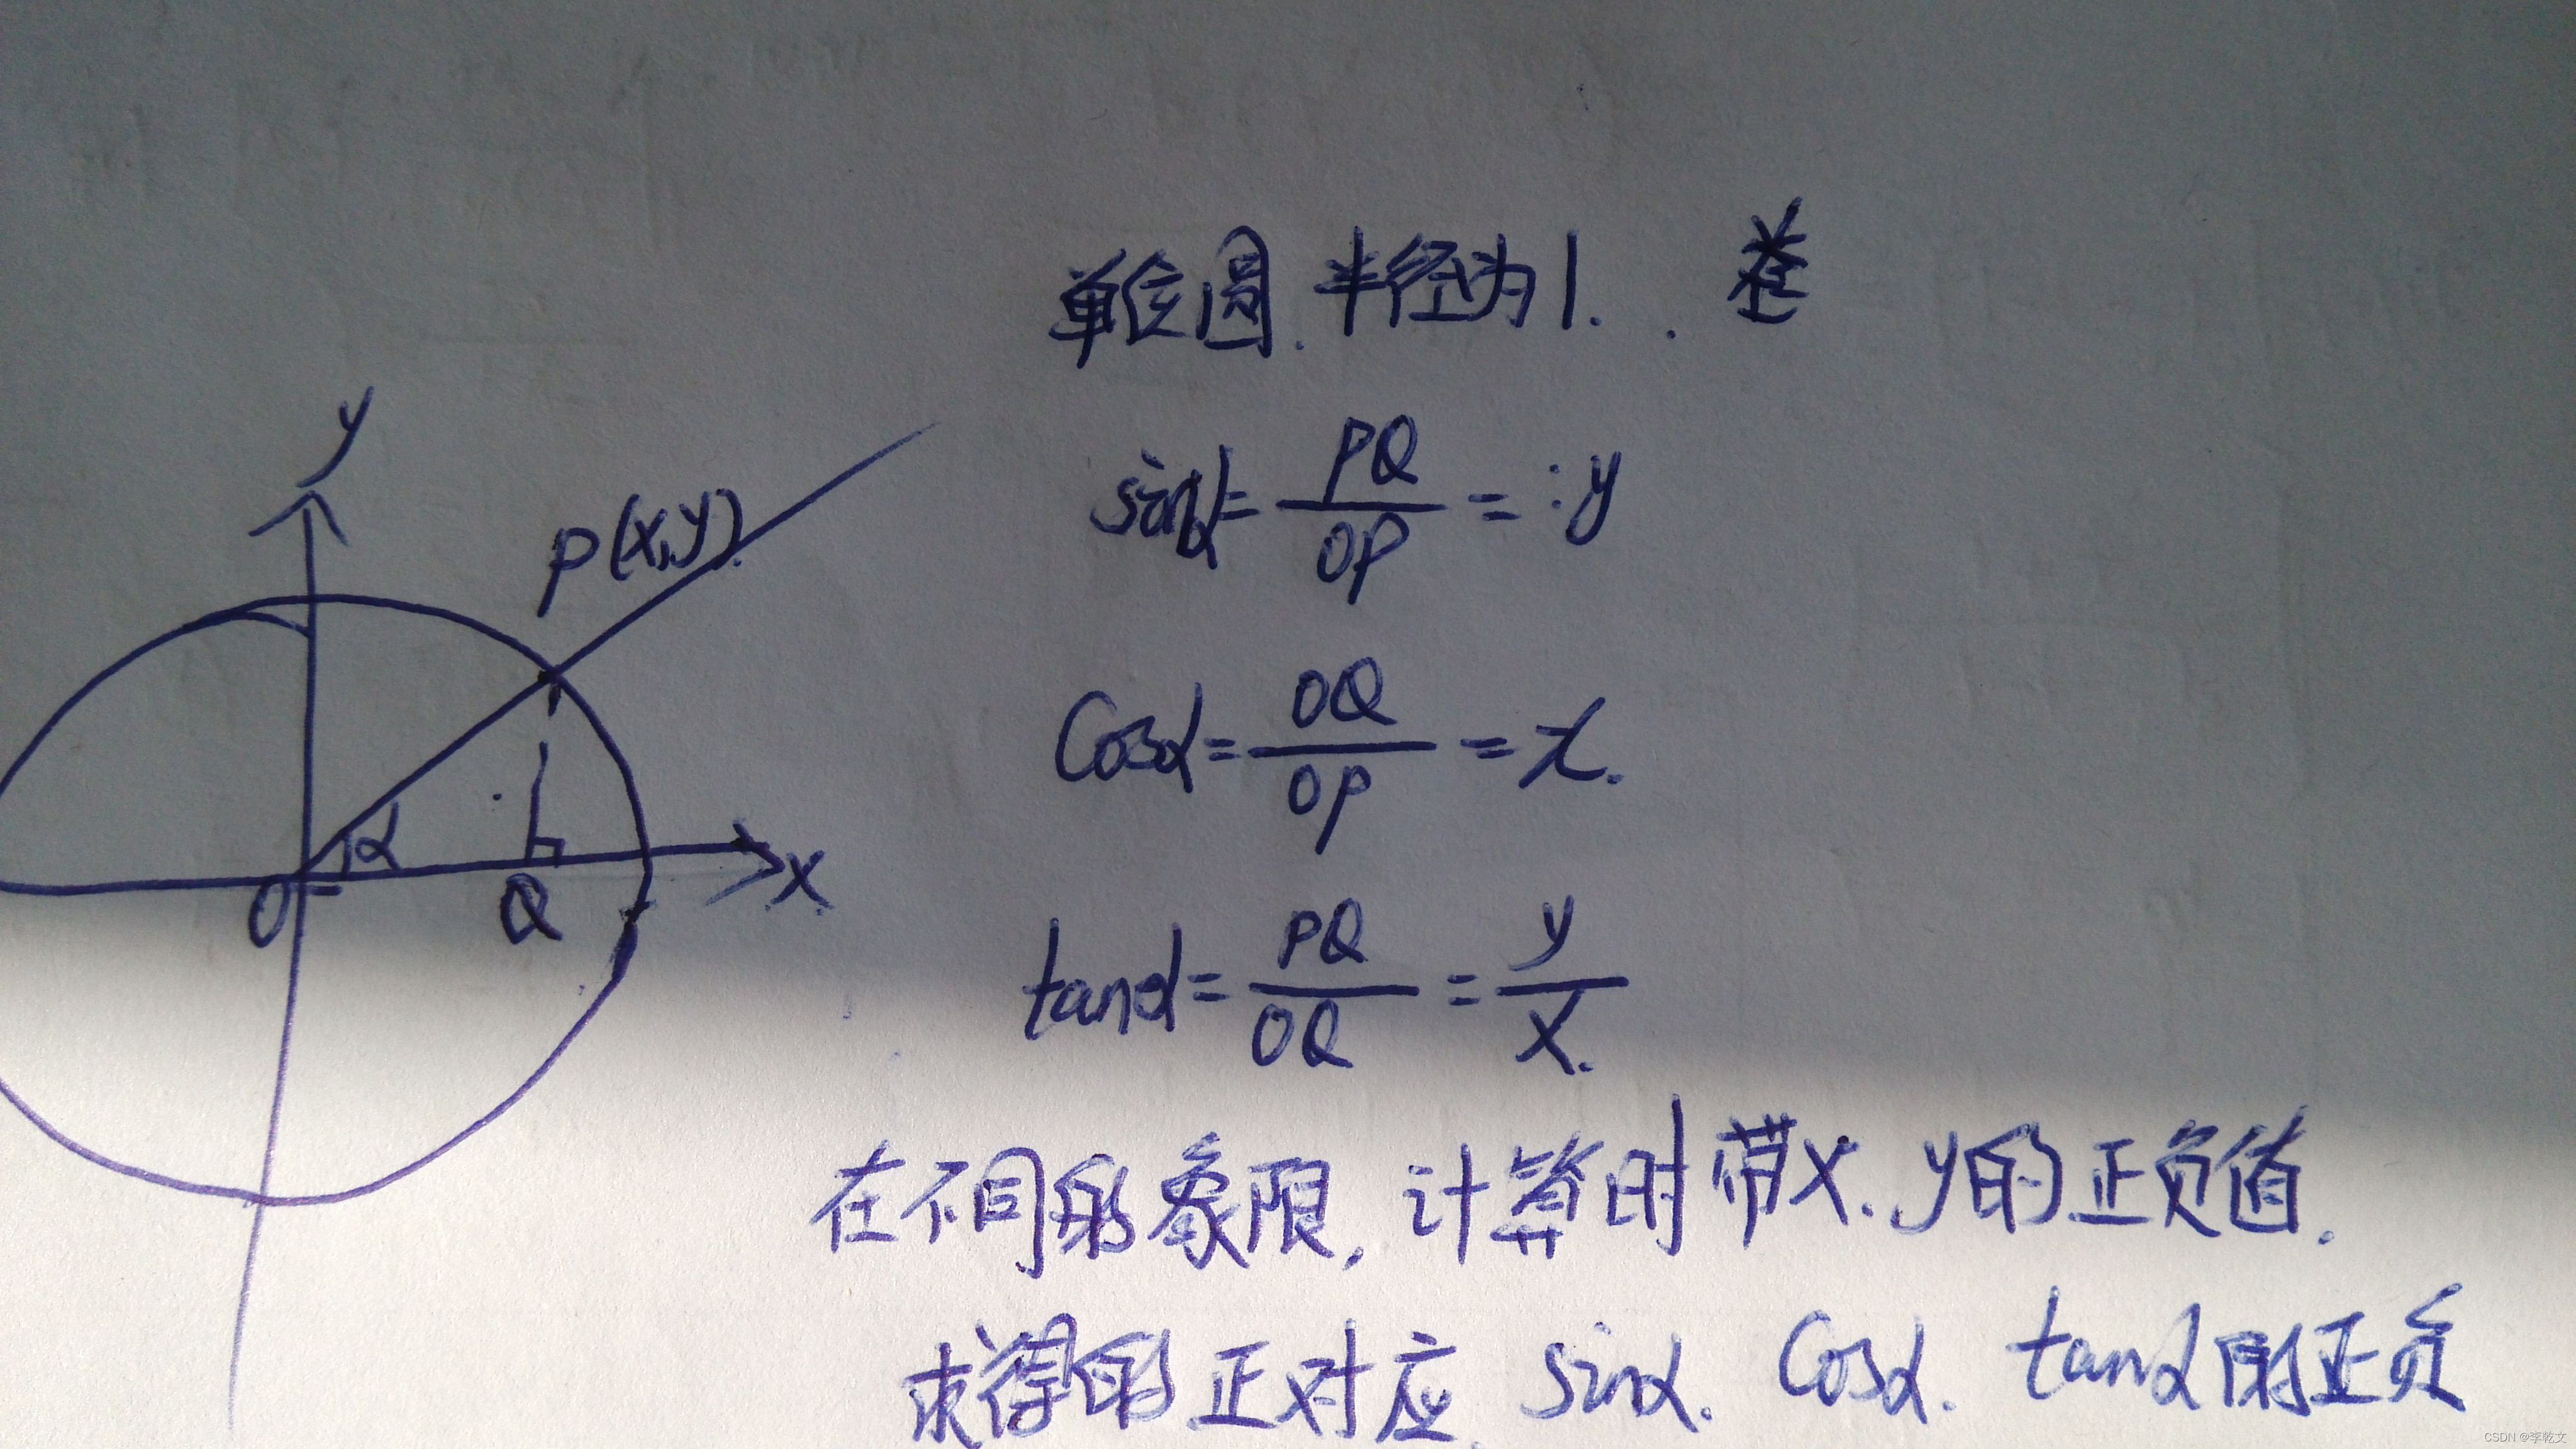 单位圆.半径为1.
y
P(x,y)
sinα=PQ/OP=:y
cosα=OQ/OP=x.
α
O
Q
x
tanα=PQ/OQ=y/x.
在不同的象限,计算时带x.y的正负值.
求得的正对应 sinα.cosα.tanα的正负
CSDN @李乾文